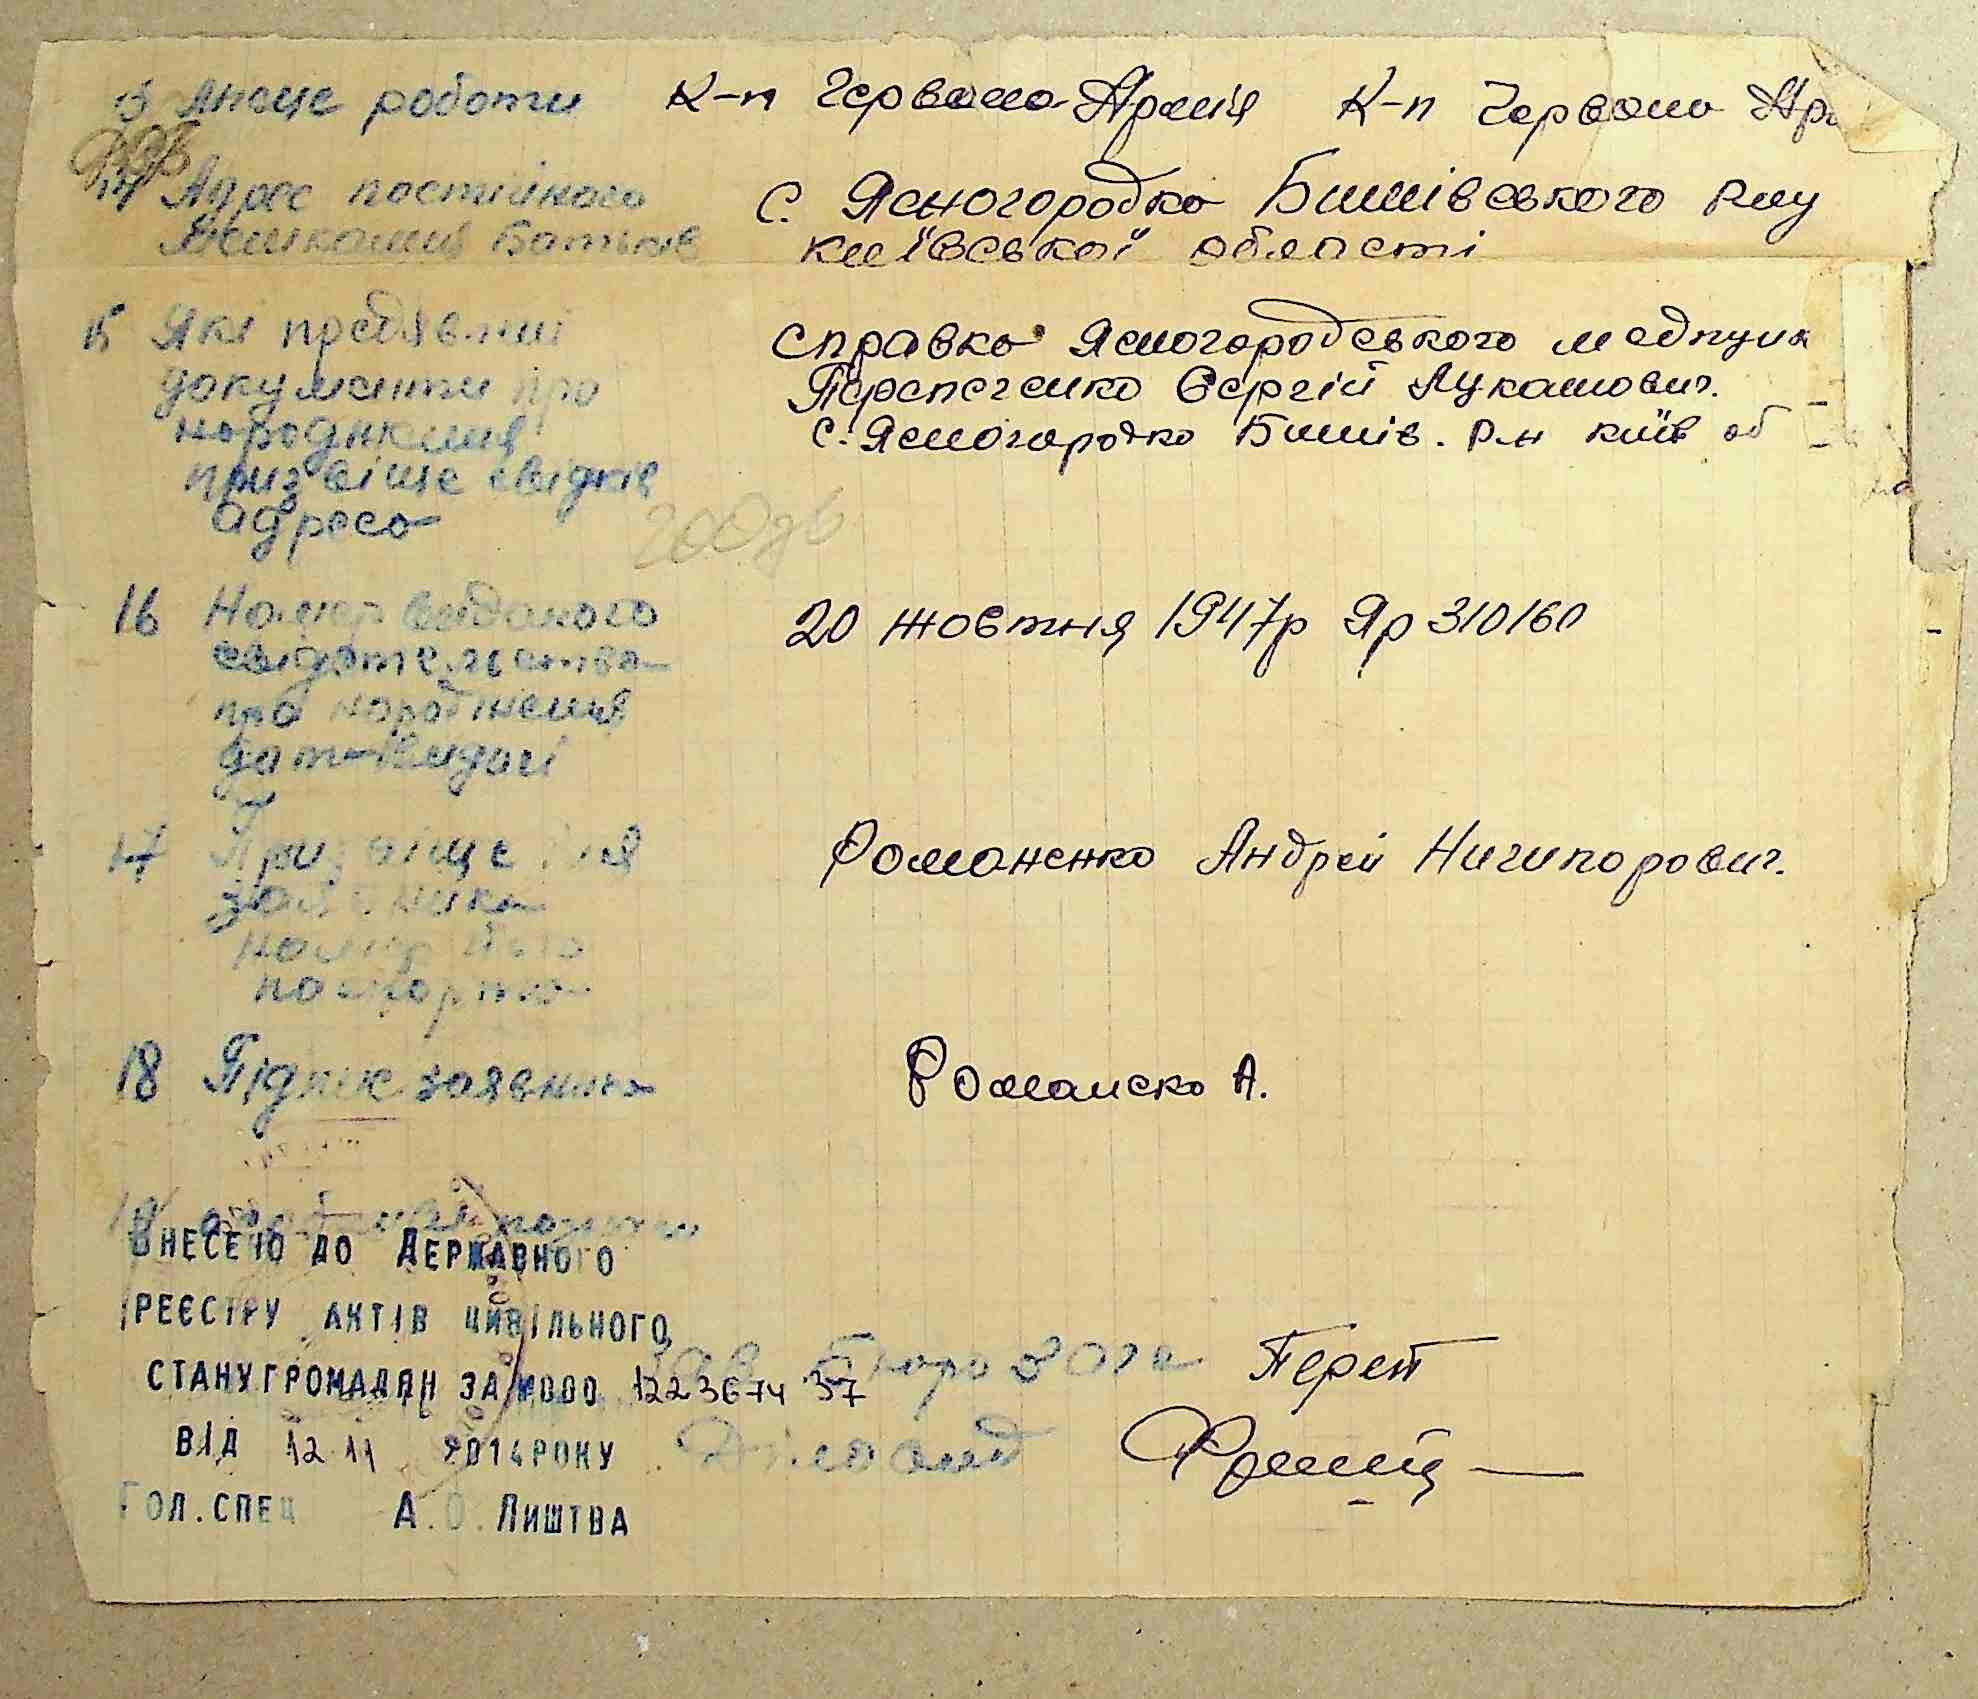 13 Місце роботи К-п Червона-Армія К-п Червона Ар
14 Адрес постійного с. Ясногородка Бишівського р-ну
Мешкання Батьків київської області
15 Які предявлені справка Ясногородського медпунк
документи про Сергій Лукашович.
народження с. Ясногородка Бишів. р-н київ об
призвіще свідків
адреса
16 Номер виданого 20 жовтня 1947р Яр 310160
свидетельства
про народження
дата видачі
17 Призвіще імя Романенко Андрей Ничипорович.
заявника
номер його
паспорта
18 Підпис заявника Романеко А.
19
ВНЕСЕНО ДО ДЕРЖАВНОГО
РЕЄСТРУ АКТІВ ЦИВІЛЬНОГО
СТАНУ ГРОМАДЯН ЗА №000 1223674 37
Зав Бюро ЗАГС
ВІД 12 11 2014 РОКУ
Діловод
ГОЛ. СПЕЦ А.О. ЛИШТВА